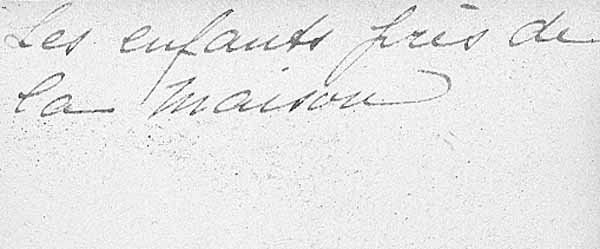 Les enfants près de
la maison